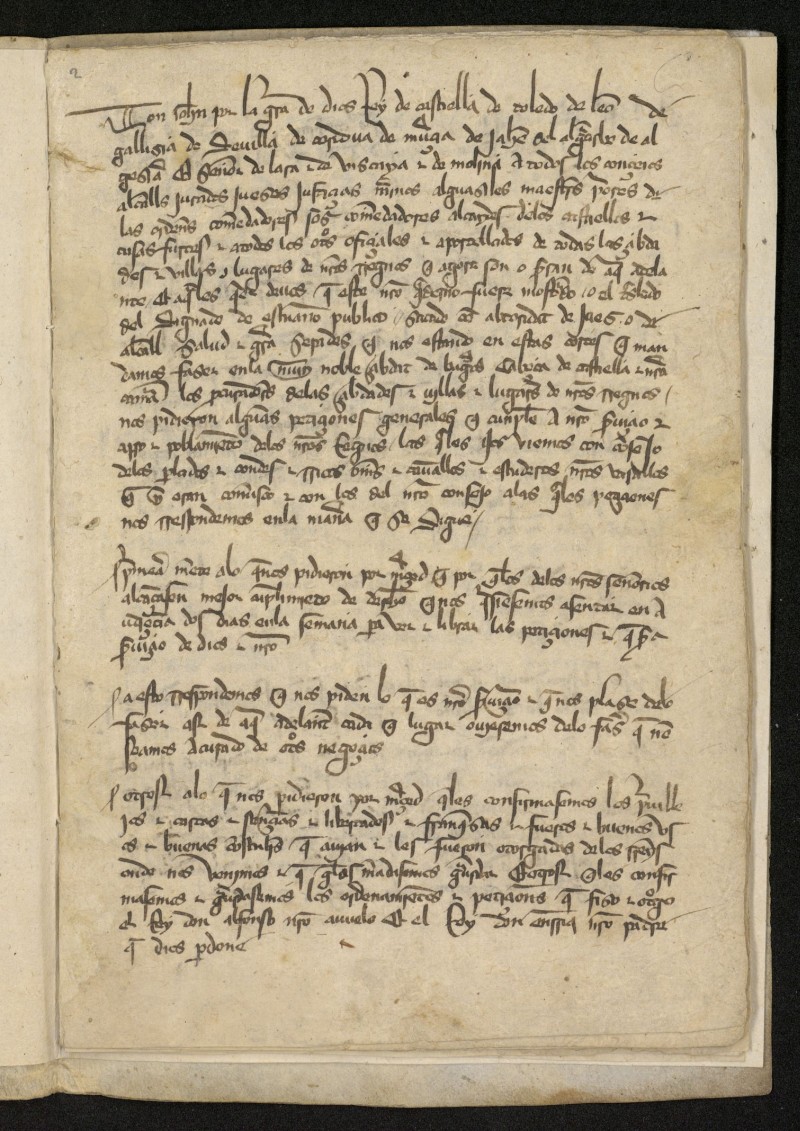 2
Don iohn por la gra de dios Rey de castiella de toledo de leo de
gallisia de Sevilla de cordova de murçia de jahen del algarbe de al
gesira Et Señor de lara & de viscaya & de molina A todos los conçeios
alcalles jurados jueses justiçias merinos alguasiles maestres priores de
las ordenes comedadores sos comedadores alcaydes delos castiellos &
casas fuertes & a todos los otros ofiçiales & aportellados de todas las çibda
des & villas & lugares de nros rregnos q agora son o seran de aq adela
nte Et aqles qe q este nro quaderno fuere mostrado o el treslado
del signado de escriuano publico sacado co abtoridat de jues o de
alcall Salud & gra Sepades q nos estando en estas cortes q man
damos faser enla muy noble çibdat de burgos cabeça de castiella & nra
camara los procuradores delas çibdades & villas & lugares de nros rregnos
nos pidieron algunas petiçiones generales q cunple A nro seruiçio &
apro & poblamieto delos nros Regnos las qles nos viemos con cosejo
delos plados & condes & rricos oms & caualleros & escuderos nros vasallos
q y eran comusco & con los del nro consejo alas qles petiçiones
nos rrespondemos enla manera q se sigue
Primera mete alo q nos pidieron por mrçed q por q los delos nros señorios
alcançasen mejor cunplimieto de derecho q nos quisiesemos asentar en A
udençia dos dias enla semana pa ver & librar las petiçiones & q sera
seruiçio de dios & nro
a esto rrespondemos q nos piden lo q es nro seruiçio & q nos plase delo
faser asi de aq adelante cada q lugar ouiesemos delo faser q no
seamos acupado de otros negoçios
otrosi alo q nos pidieron por mrçed q les confirmasemos los preuille
jos & cartas & sentençias & libertades & franquesas & fueros & buenos vs
os & buenas costunbres q auian & les fueron otorgadas delos rreys
onde nos venimos & q gelos mandasemos guardar Et otrosi q les confir
masemos & guardasemos los ordenamientos & petiçiones q fiso & otorgo
el Rey don alfonso nro auuelo Et el Rey don enrriq nro padre
q dios perdone